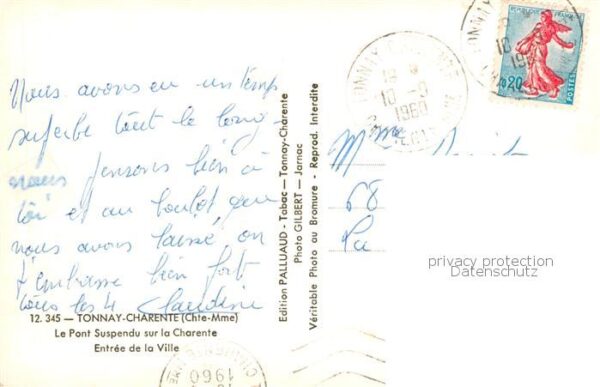 Nous avons eu un temps
superbe tout le long.
nous pensons bien à
toi et au boulot que
nous avons laissé, on
t'embrasse bien fort
tous les 4 Claudine
12. 345 — TONNAY-CHARENTE (Chte-Mme)
Le Pont Suspendu sur la Charente
Entrée de la Ville
Edition PALLUAUD - Tabac — Tonnay-Charente
Photo GILBERT — Jarnac
Véritable Photo au Bromure - Reprod. Interdite
TONNAY-CHARENTE
1960
REPUBLIQUE FRANCAISE
0,20
POSTES
Mme
68
privacy protection
Datenschutz
1960